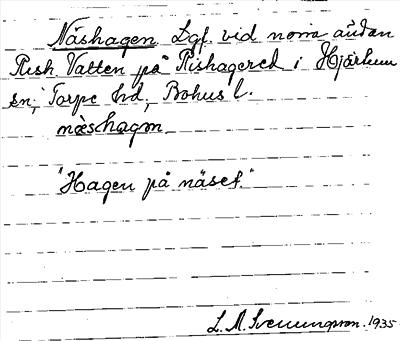 Näshagen Lgf. vid norra ändan
Rish. Vatten på Rishagered i Hjärtum
sn, Torpe hd, Bohus l.
næshagɒn
"Hagen på näset."
L. M. Svenungsson. 1935